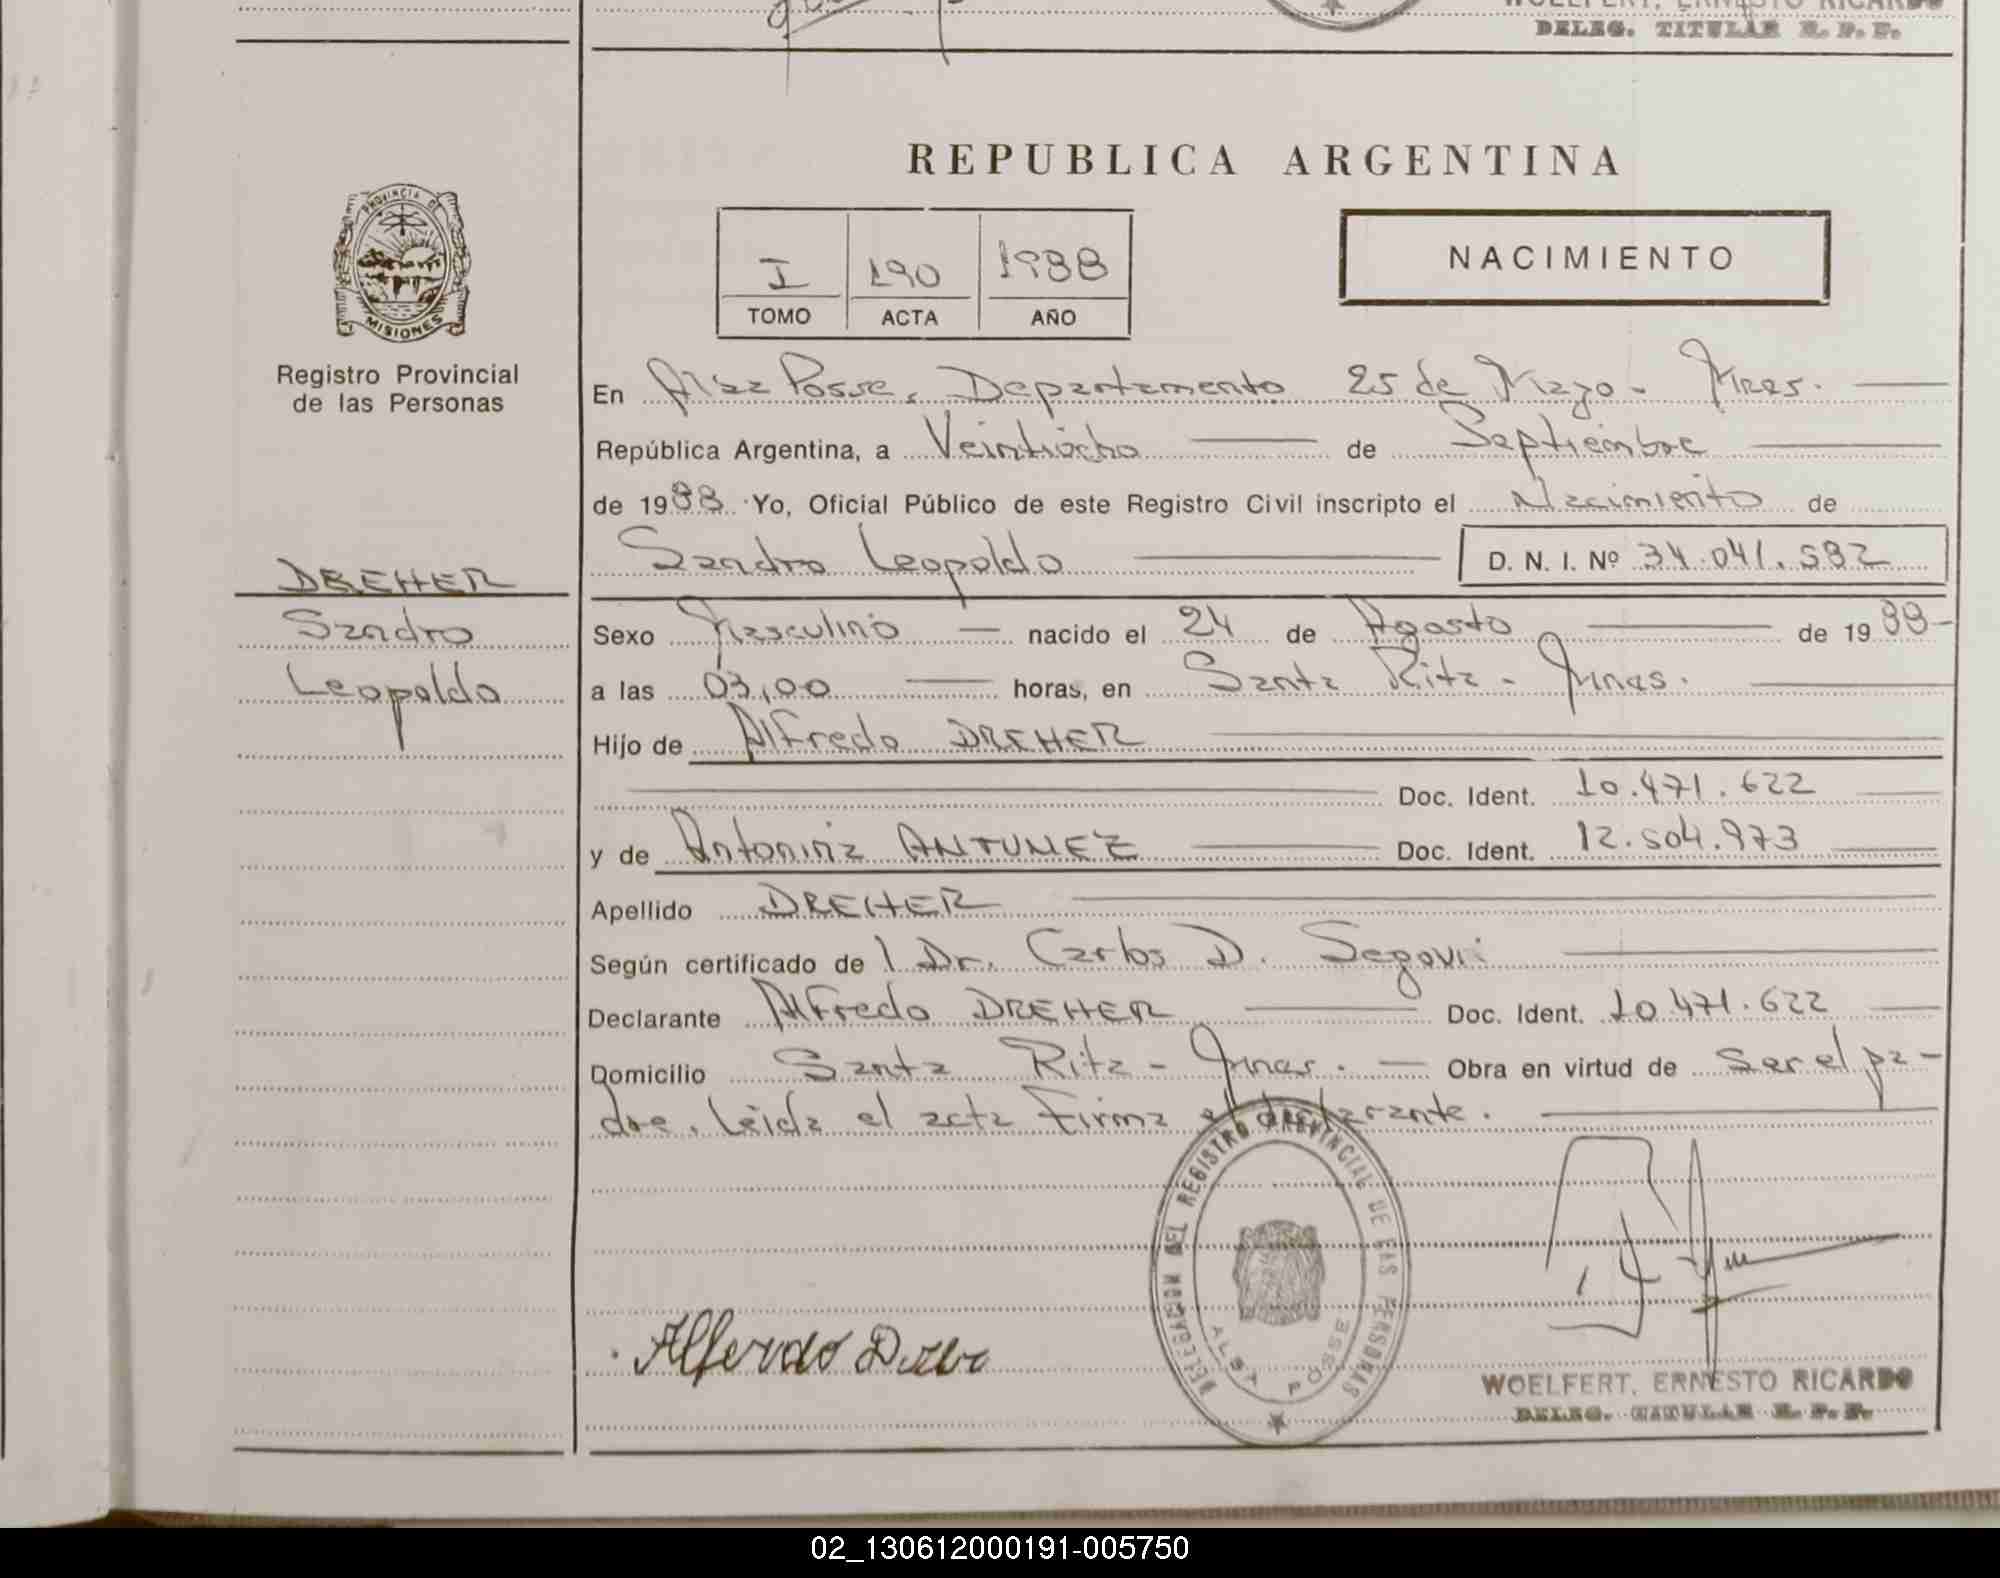 WOELFERT, ERNESTO RICARDO
DELEG. TITULAR R. P. P.
REPUBLICA ARGENTINA
PROVINCIA DE
MISIONES
Registro Provincial
de las Personas
I 190 1988
TOMO ACTA AÑO
NACIMIENTO
En Alba Posse, Departamento 25 de Mayo - Mnes.
República Argentina, a Veintiocho de Septiembre
de 1988 Yo, Oficial Público de este Registro Civil inscripto el Nacimiento de
Sandro Leopoldo D. N. I. Nº 34.041.582
DREHER
Sandro
Leopoldo
Sexo Masculino nacido el 24 de Agosto de 1988
a las 03,00 horas, en Santa Rita - Mnes.
Hijo de Alfredo DREHER
Doc. Ident. 10.471.622
y de Antonina ANTUNEZ Doc. Ident. 12.504.973
Apellido DREHER
Según certificado de l Dr. Carlos D. Segovi
Declarante Alfredo DREHER Doc. Ident. 10.471.622
Domicilio Santa Rita - Mnes. Obra en virtud de ser el pa-
dre. Leida el acta firma el declarante.
DELEGACION DEL REGISTRO PROVINCIAL DE LAS PERSONAS
ALBA POSSE
WOELFERT, ERNESTO RICARDO
DELEG. TITULAR R. P. P.
02_130612000191-005750